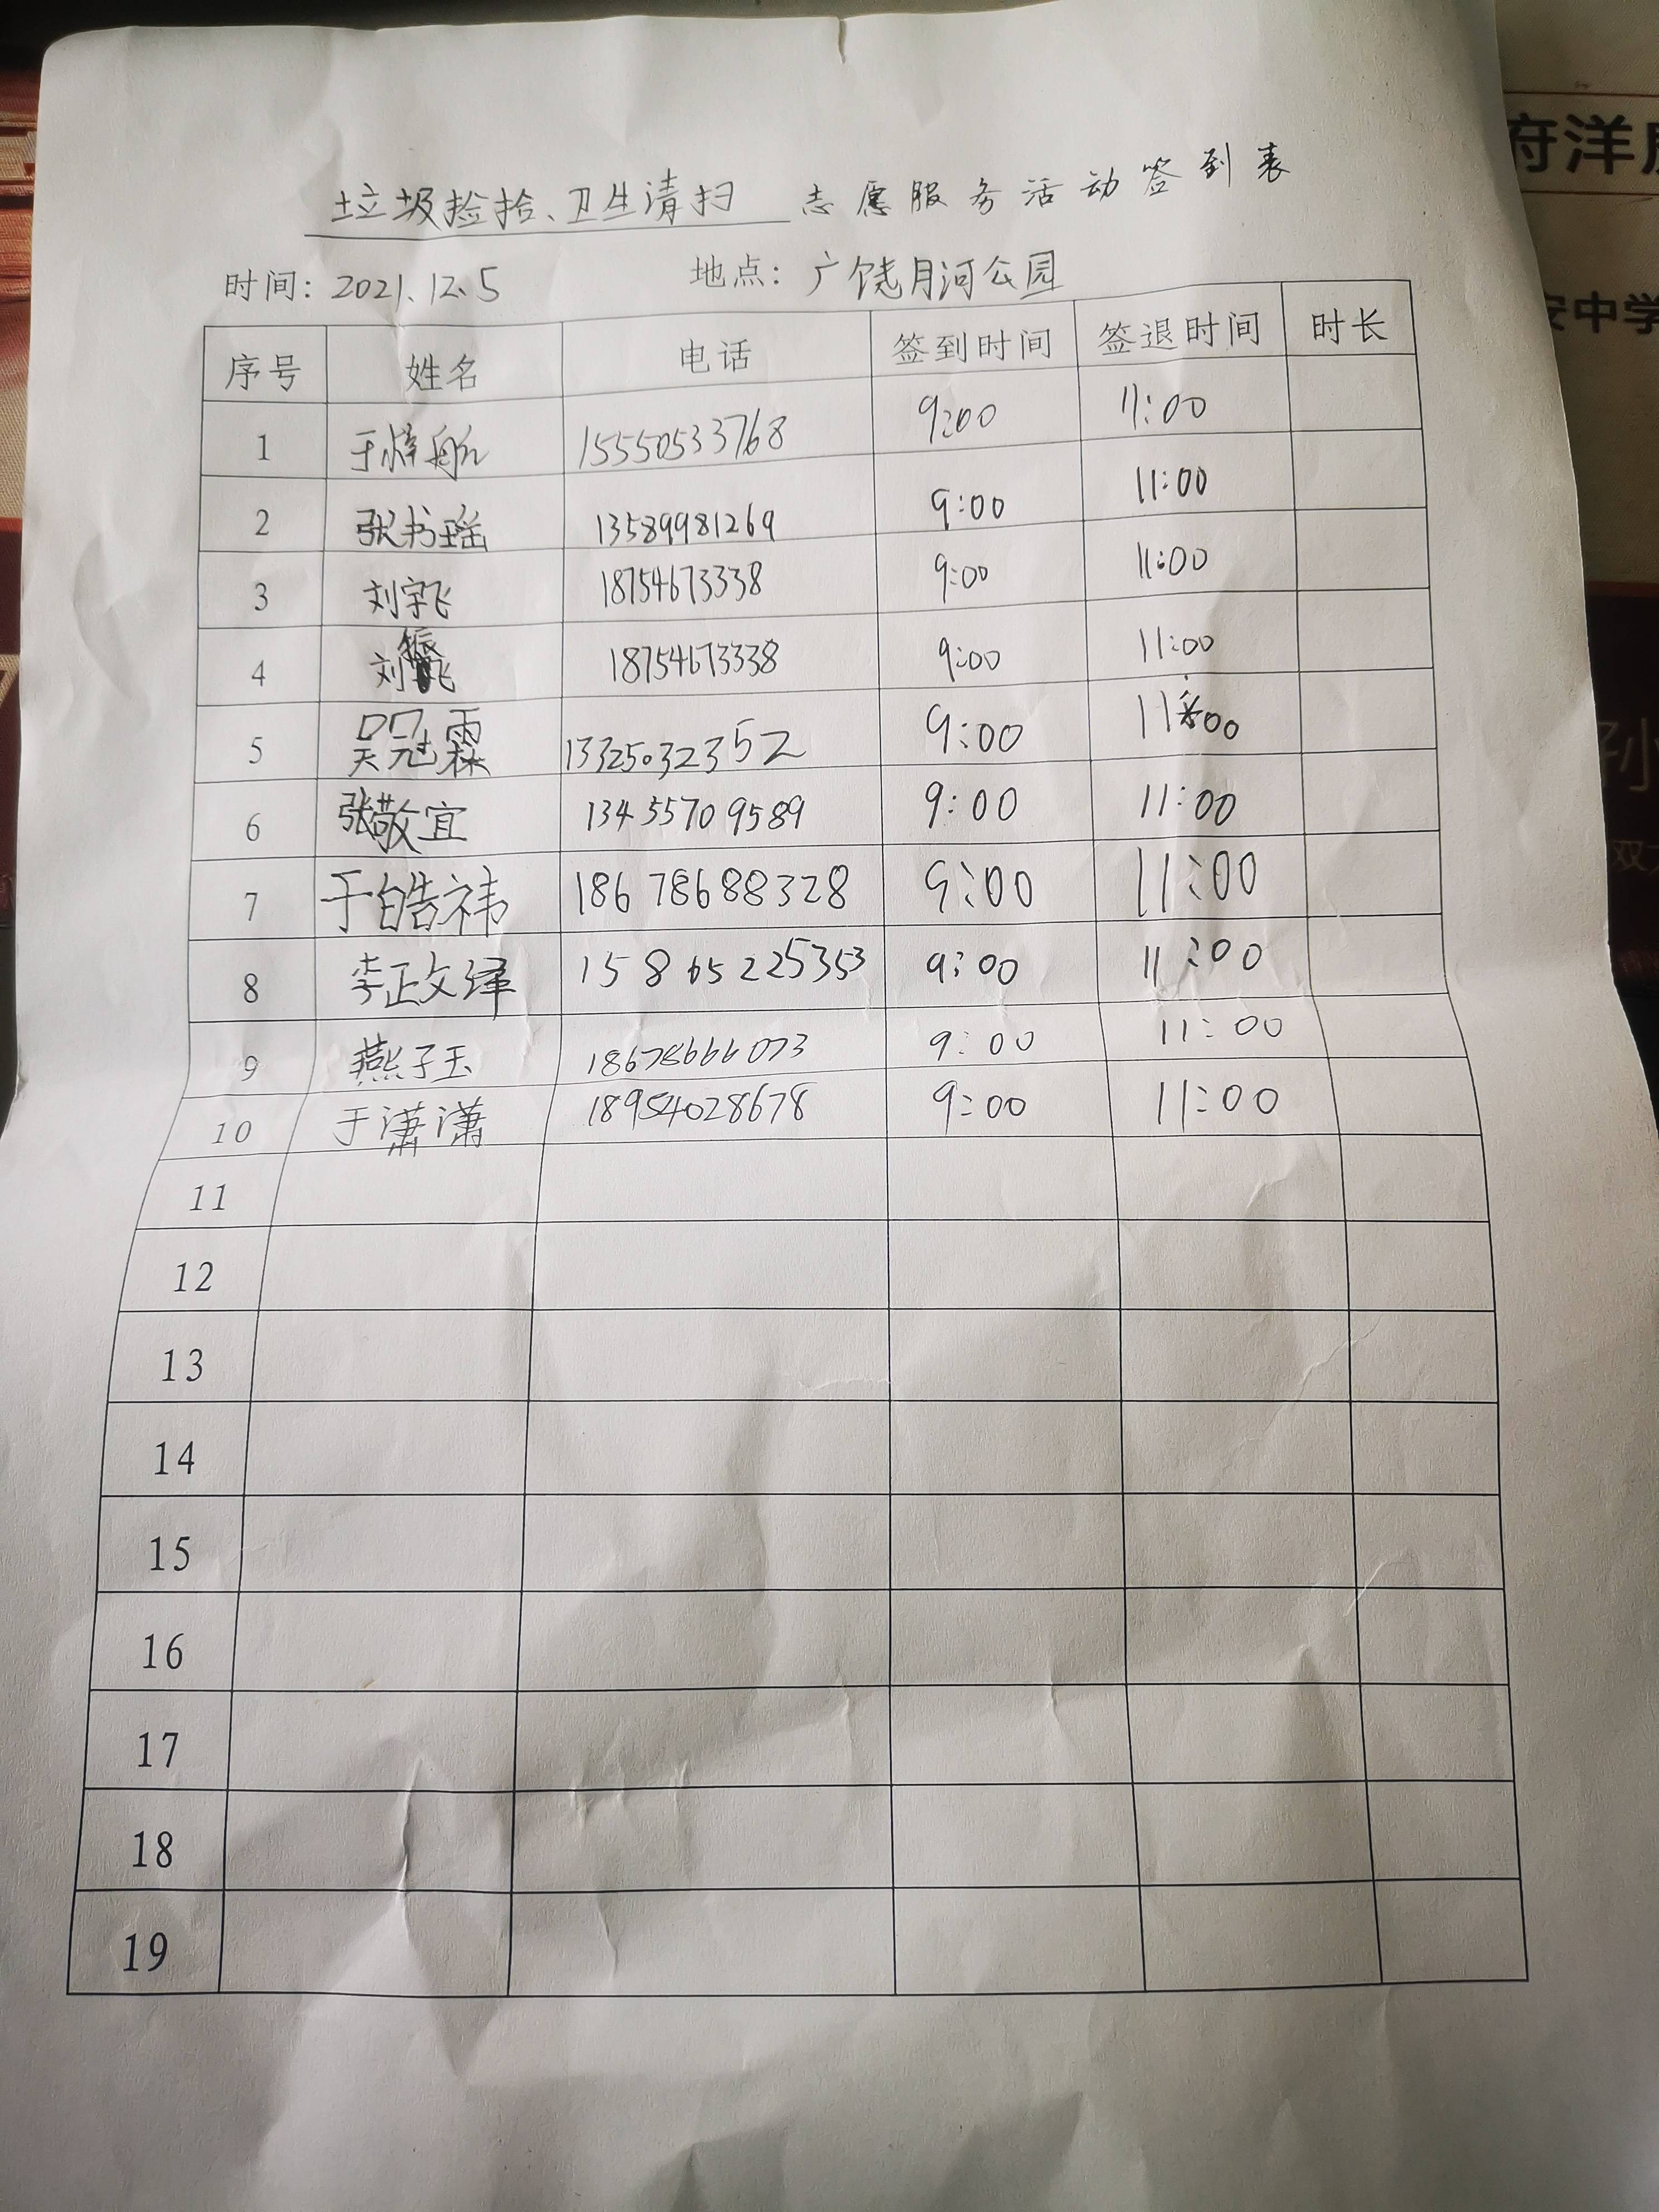 垃圾捡拾、卫生清扫 志愿服务活动签到表
时间：2021.12.5 地点：广饶月河公园
序号 姓名 电话 签到时间 签退时间 时长
1 于梓航 15550533768 9:00 11:00
2 张书瑶 13589981269 9:00 11:00
3 刘宇飞 18754673338 9:00 11:00
4 刘振飞 18754673338 9:00 11:00
5 吴冠霖 13325032352 9:00 11:00
6 张敬宜 13455709589 9:00 11:00
7 于皓祎 18678688328 9:00 11:00
8 李正文泽 9:00 11:00
9 燕子玉 18678666073 9:00 11:00
10 于潇潇 18954028678 9:00 11:00
11
12
13
14
15
16
17
18
19
府洋房
安中学
双